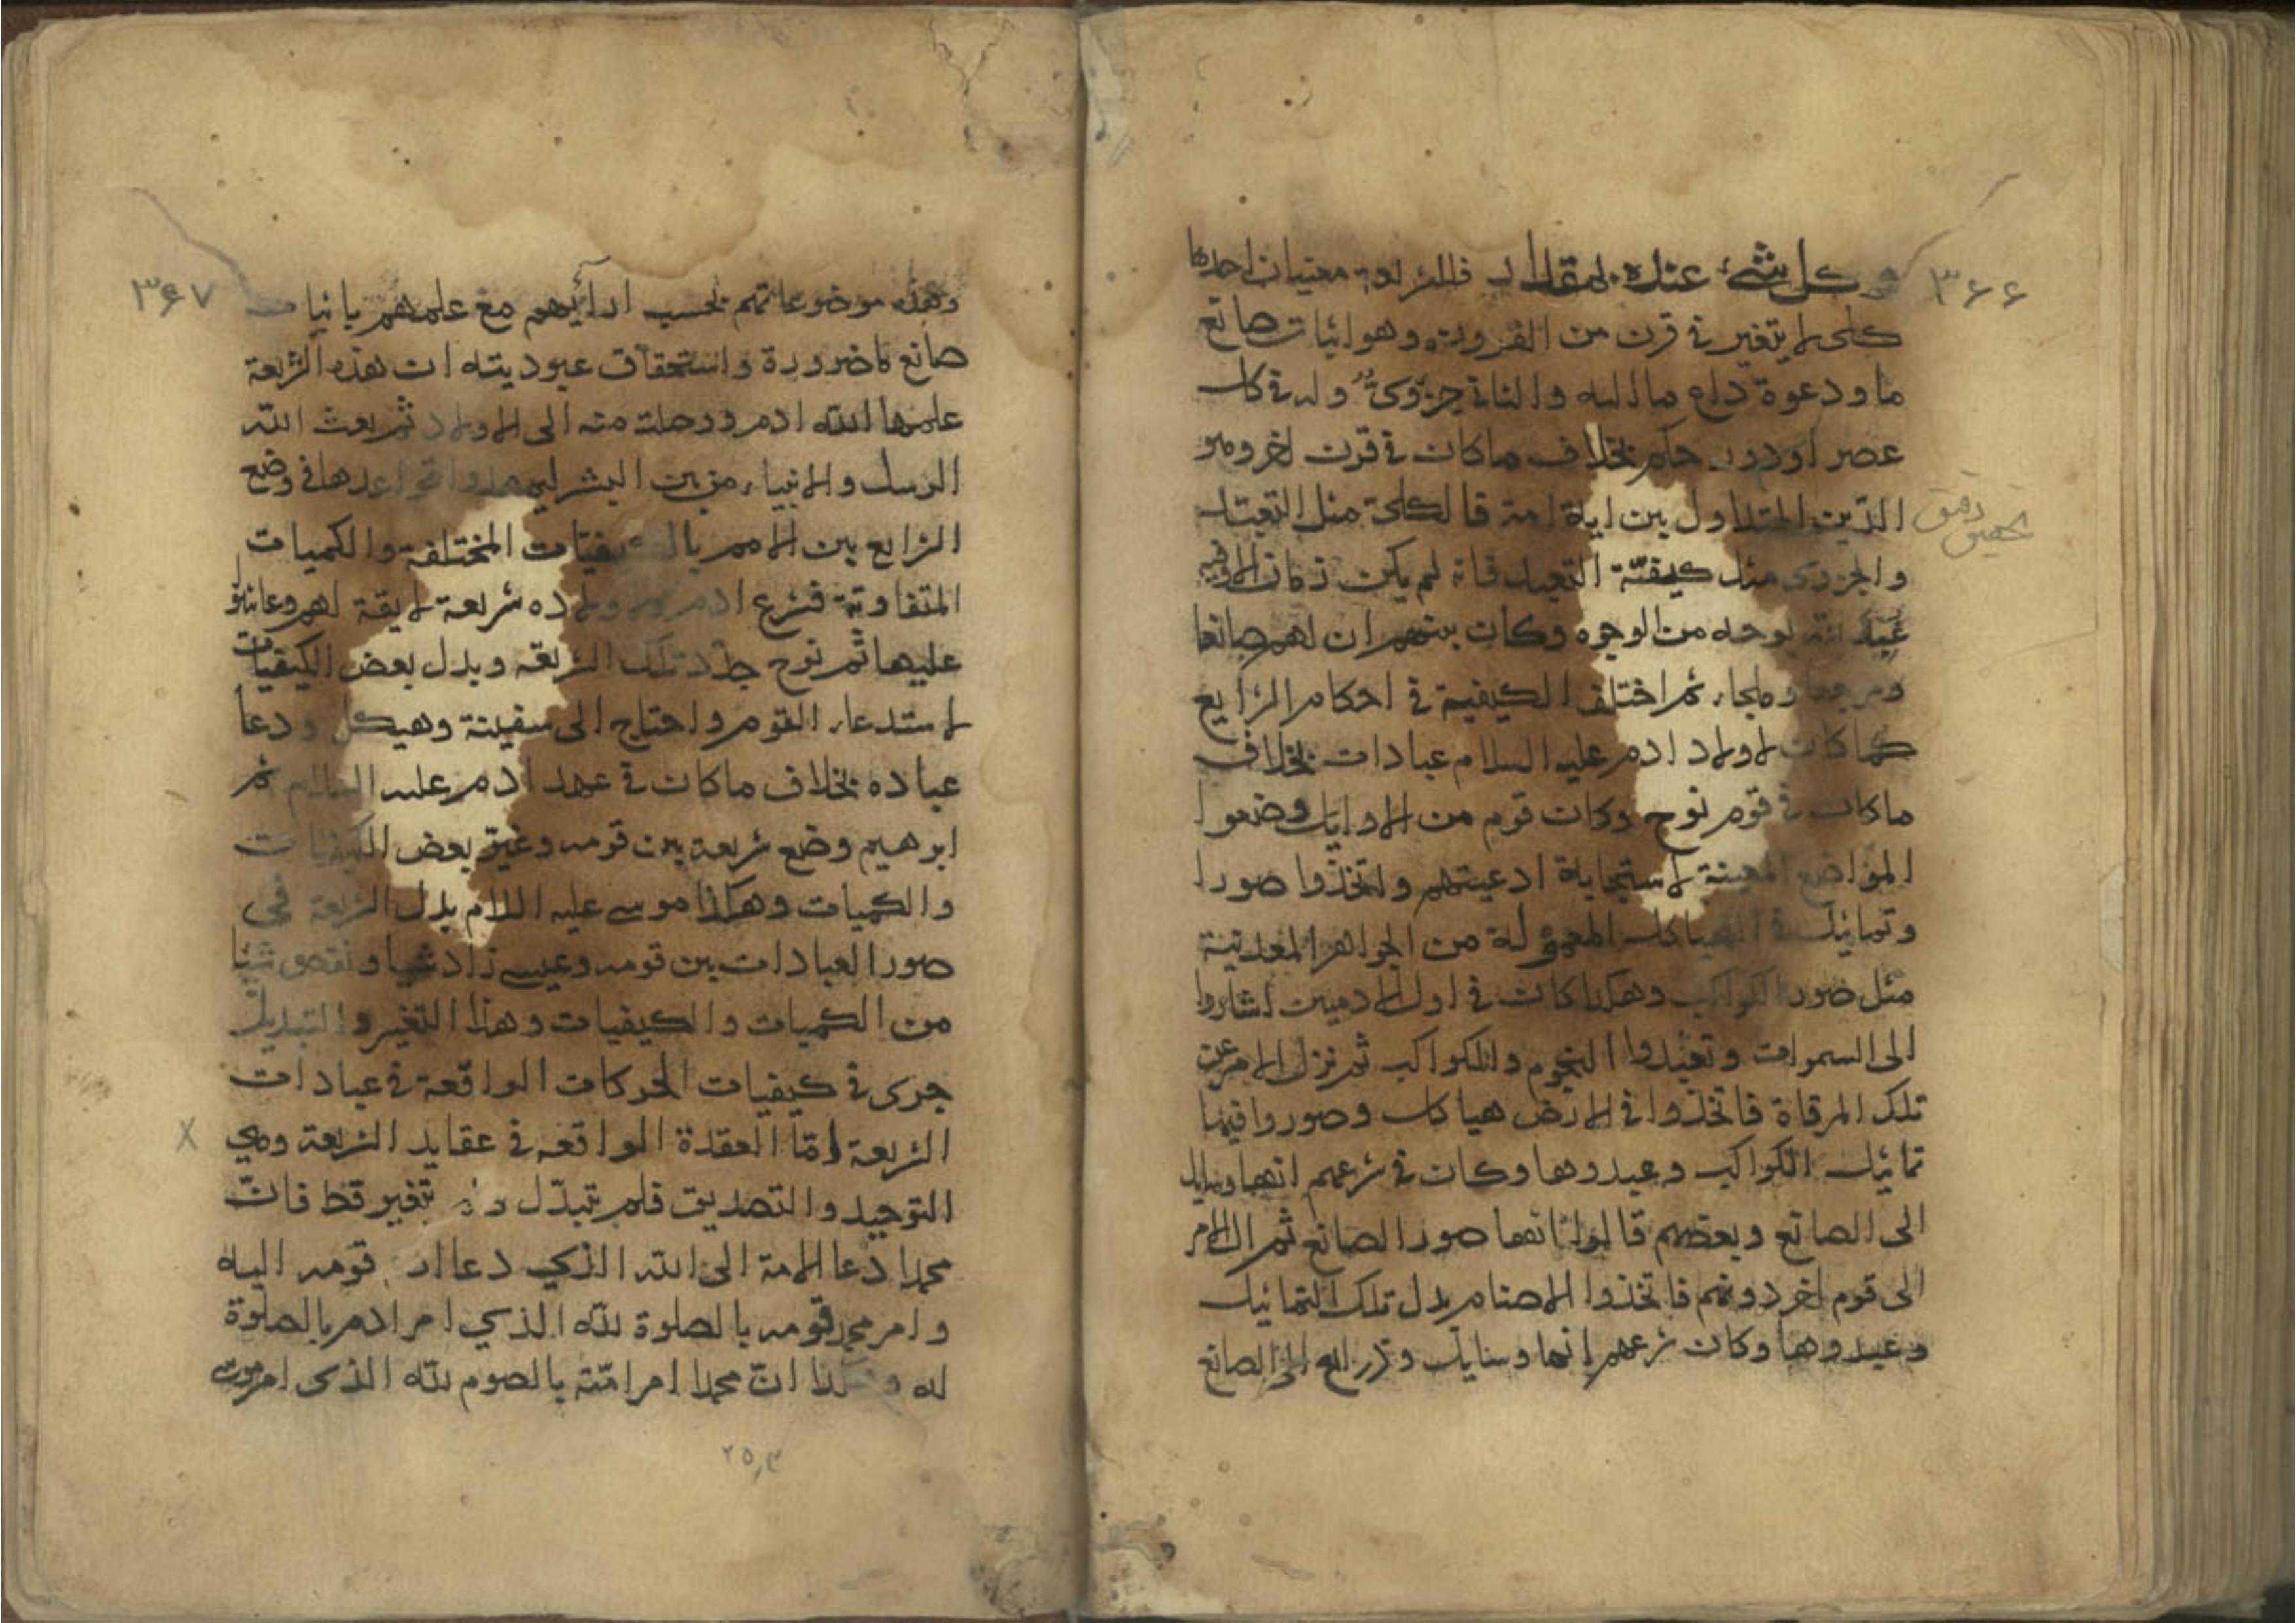 ٣٦٦
وكل شئ عنده بمقدار فللشريعة معنيان احدها
كلى لا يتغير فى قرن من القرون وهو اثبات صانع
ما ودعوة داع ما اليه والثانى جزوىٌّ وله فى كل
عصر او دور حكم بخلاف ما كان فى قرن اخر وهو
الدّين المتداول بين اية امة فالكلى مثل التعبد
والجزوى مثل كيفيّة التعبد فانه لم يكن زمان الا وفيه
عبد الله بوجه من الوجوه وكان بينهم ان لهم صانعا
ومرجعا وملجاء ثم اختلف الكيفية فى احكام الشرايع
كما كان لاولاد ادم عليه السلام عبادات بخلاف
ما كان فى قوم نوح وكان قوم من الاوايل وضعوا
المواضع المعينة لاستجابة ادعيتهم واتخذوا صورا
وتماثيل فى الهياكل المعمولة من الجواهر المعدنية
مثل صور الكواكب وهكذا كان فى اول الادميين اشاروا
الى السموات وتعبدوا النجوم والكواكب ثم نزل الامر عن
تلك المرقاة فاتخذوا فى الارض هياكل وصوروا فيها
تماثيل الكواكب وعبدوها وكان فى زعمهم انها وسايل
الى الصانع وبعضهم قالوا انها صور الصانع ثم ال الامر
الى قوم اخر دونهم فاتخذوا الاصنام بدل تلك التماثيل
وعبدوها وكان زعمهم انها وسايل وذرايع الى الصانع
تحقيق دقيق
٣٦٧
وهذه موضوعاتهم بحسب ارائهم مع علمهم باثبات
صانع لا ضرورة واستحقاق عبوديته ان هذه الشريعة
علمها الله ادم ورحلت منه الى الاولاد ثم بعث الله
الرسل والانبياء من بين البشر ليمهدوا قواعدها فى وضع
الشرايع بين الامم بالكيفيات المختلفة والكميات
المتفاوتة فشرع ادم لاولاده شريعة لايقة لهم وعاشوا
عليها ثم نوح جدّد تلك الشريعة وبدل بعض الكيفيات
لاستدعاء القوم واحتاج الى سفينة وهيكل ودعا
عباده بخلاف ما كان فى عهد ادم عليه السلام ثم
ابرهيم وضع شريعة بين قومه وغيّر بعض الكيفيات
والكميات وهكذا موسى عليه السلام بدل الشريعة فى
صور العبادات بين قومه وعيسى زاد شيا ونقص شيا
من الكميات والكيفيات وهذا التغير والتبديل
جرى فى كيفيات الحركات الواقعة فى عبادات
الشريعة امّا العقدة الواقعه فى عقايد الشريعة وهى
التوحيد والتصديق فلم تتبدّل ولم تتغير قط فانّ
محمدا دعا الامة الى الله الذى دعا ادم قومه اليه
وامر محمد قومه بالصلوة لله الذى امر ادم بالصلوة
له وهكذا انّ محمدا امر امّته بالصوم لله الذى امر موسى